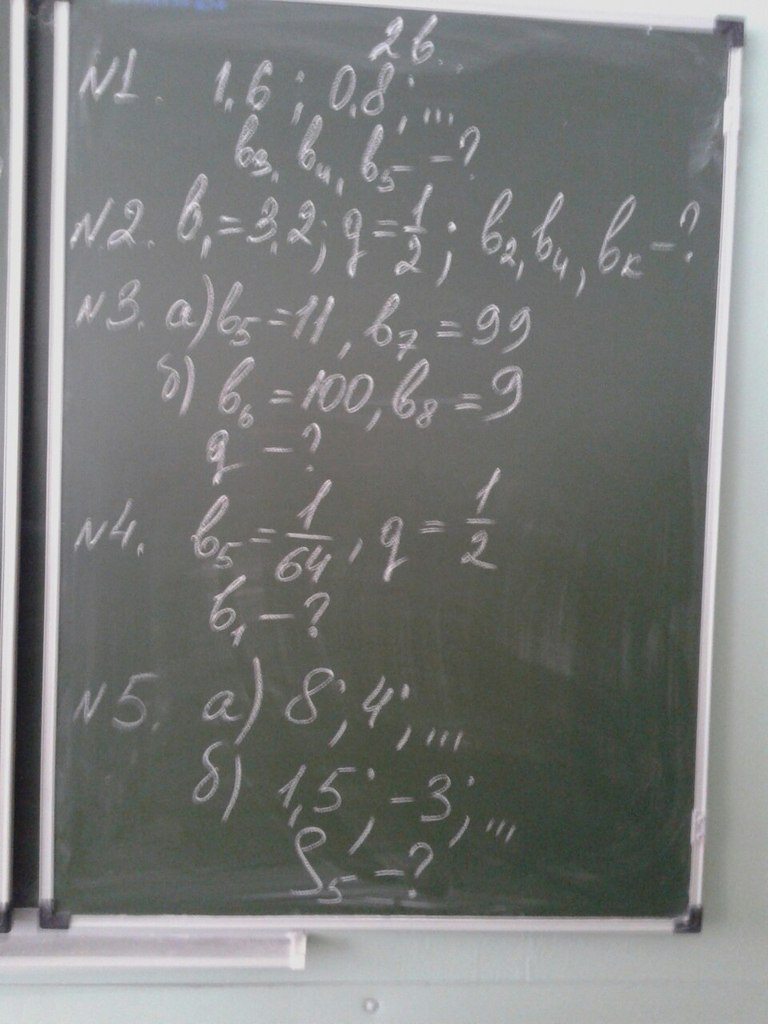 2в.
N1. 1,6 ; 0,8 ; ...
b₃, b₄, b₅ - ?
N2. b₁ = 3,2 ; q = 1/2 ; b₂, b₄, bₖ - ?
N3. а) b₅ = 11, b₇ = 99
б) b₆ = 100, b₈ = 9
q - ?
N4. b₅ = 1/64, q = 1/2
b₁ - ?
N5. а) 8 ; 4 ; ...
б) 1,5 ; -3 ; ...
S₅ - ?